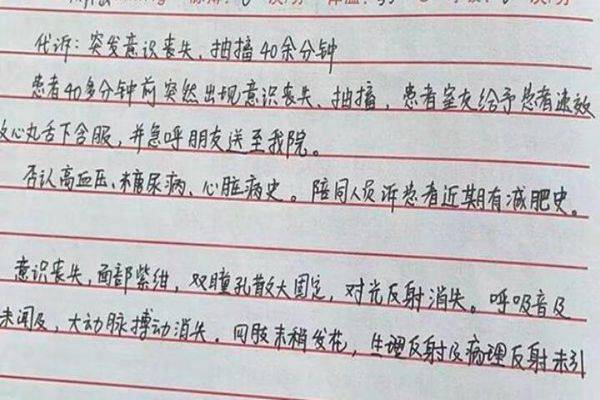 代诉：突发意识丧失、抽搐40余分钟
患者40多分钟前突然出现意识丧失、抽搐，患者室友给予患者速效
救心丸舌下含服，并急呼朋友送至我院。
否认高血压、糖尿病、心脏病史。陪同人员诉患者近期有减肥史。
意识丧失，面部紫绀，双瞳孔散大固定，对光反射消失。呼吸音及
未闻及，大动脉搏动消失。四肢末稍发花，生理反射及病理反射未引